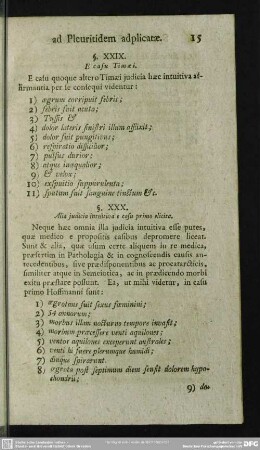 ad Pleuritidem adplicatæ. 15
§. XXIX.
E casu Timæi.
E casu quoque altero Timæi judicia hæc intuitiva af-
firmantia per se consequi videntur:
1) ægrum corripuit febris;
2) febris fuit acuta;
3) Tussis &
4) dolor lateris sinistri illum afflixit;
5) dolor fuit pungitivus;
6) respiratio difficilior;
7) pulsus durior;
8) atque inæqualior;
9) & velox;
10) exspuitio suppurulenta;
11) sputum fuit sanguine tinctum &c.
§. XXX.
Alia judicia intuitiva e casu primo elicita.
Neque hæc omnia illa judicia intuitiva esse putes,
quæ medico e propositis casibus depromere liceat.
Sunt & alia, quæ usum certe aliquem in re medica,
præsertim in Pathologia & in cognoscendis causis an-
tecedentibus, sive prædisponentibus ac procatarcticis,
similiter atque in Semeiotica, ac in prædicendo morbi
exitu præstare possunt. Ea, ut mihi videtur, in casu
primo Hoffmanni sunt:
1) ægrotans fuit sexus fœminini;
2) 54 annorum;
3) morbus illam nocturno tempore invasit;
4) morbum præcessere venti aquilones;
5) ventos aquilones exceperunt australes;
6) venti hi fuere plerumque humidi;
7) diuque spirarunt.
8) ægrota post septimum diem sensit dolorem hypo-
chondrii;
9) do-